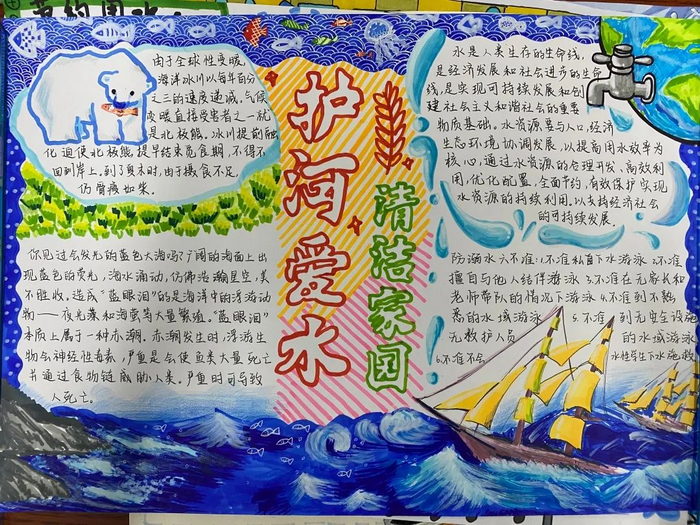 节约用水
由于全球性变暖,
海洋冰川以每年百分
之三的速度递减,气候
变暖直接受害者之一就
是北极熊。冰川提前融
化迫使北极熊提早结束觅食期,不得不
回到岸上。到了夏末时,由于摄食不足,
仍骨瘦如柴。
护河爱水
清洁家园
水是人类生存的生命线,
是经济发展和社会进步的生命
线,是实现可持续发展和创
建社会主义和谐社会的重要
物质基础。水资源要与人口,经济
生态环境协调发展,以提高用水效率为
核心,通过水资源的合理开发,高效利
用,优化配置,全面节约,有效保护实现
水资源的持续利用,以支持经济社会
的可持续发展。
你见过会发光的蓝色大海吗?广阔的海面上出
现蓝色的荧光,海水涌动,仿佛浩瀚星空,美
不胜收。造成“蓝眼泪”的是海洋中的浮游动
物——夜光藻和海萤等大量繁殖。“蓝眼泪”
本质上属于一种赤潮。赤潮发生时,浮游生
物会神经性毒素,严重是会使鱼类大量死亡
并通过食物链威胁人类。严重时可导致
人死亡。
防溺水六不准:1.不准私自下水游泳 2.不准
擅自与他人结伴游泳 3.不准在无家长和
老师带队的情况下游泳 4.不准到不熟
悉的水域游泳 5.不准到无安全设施
无救护人员的水域游泳
6.不准不会水性学生下水施救